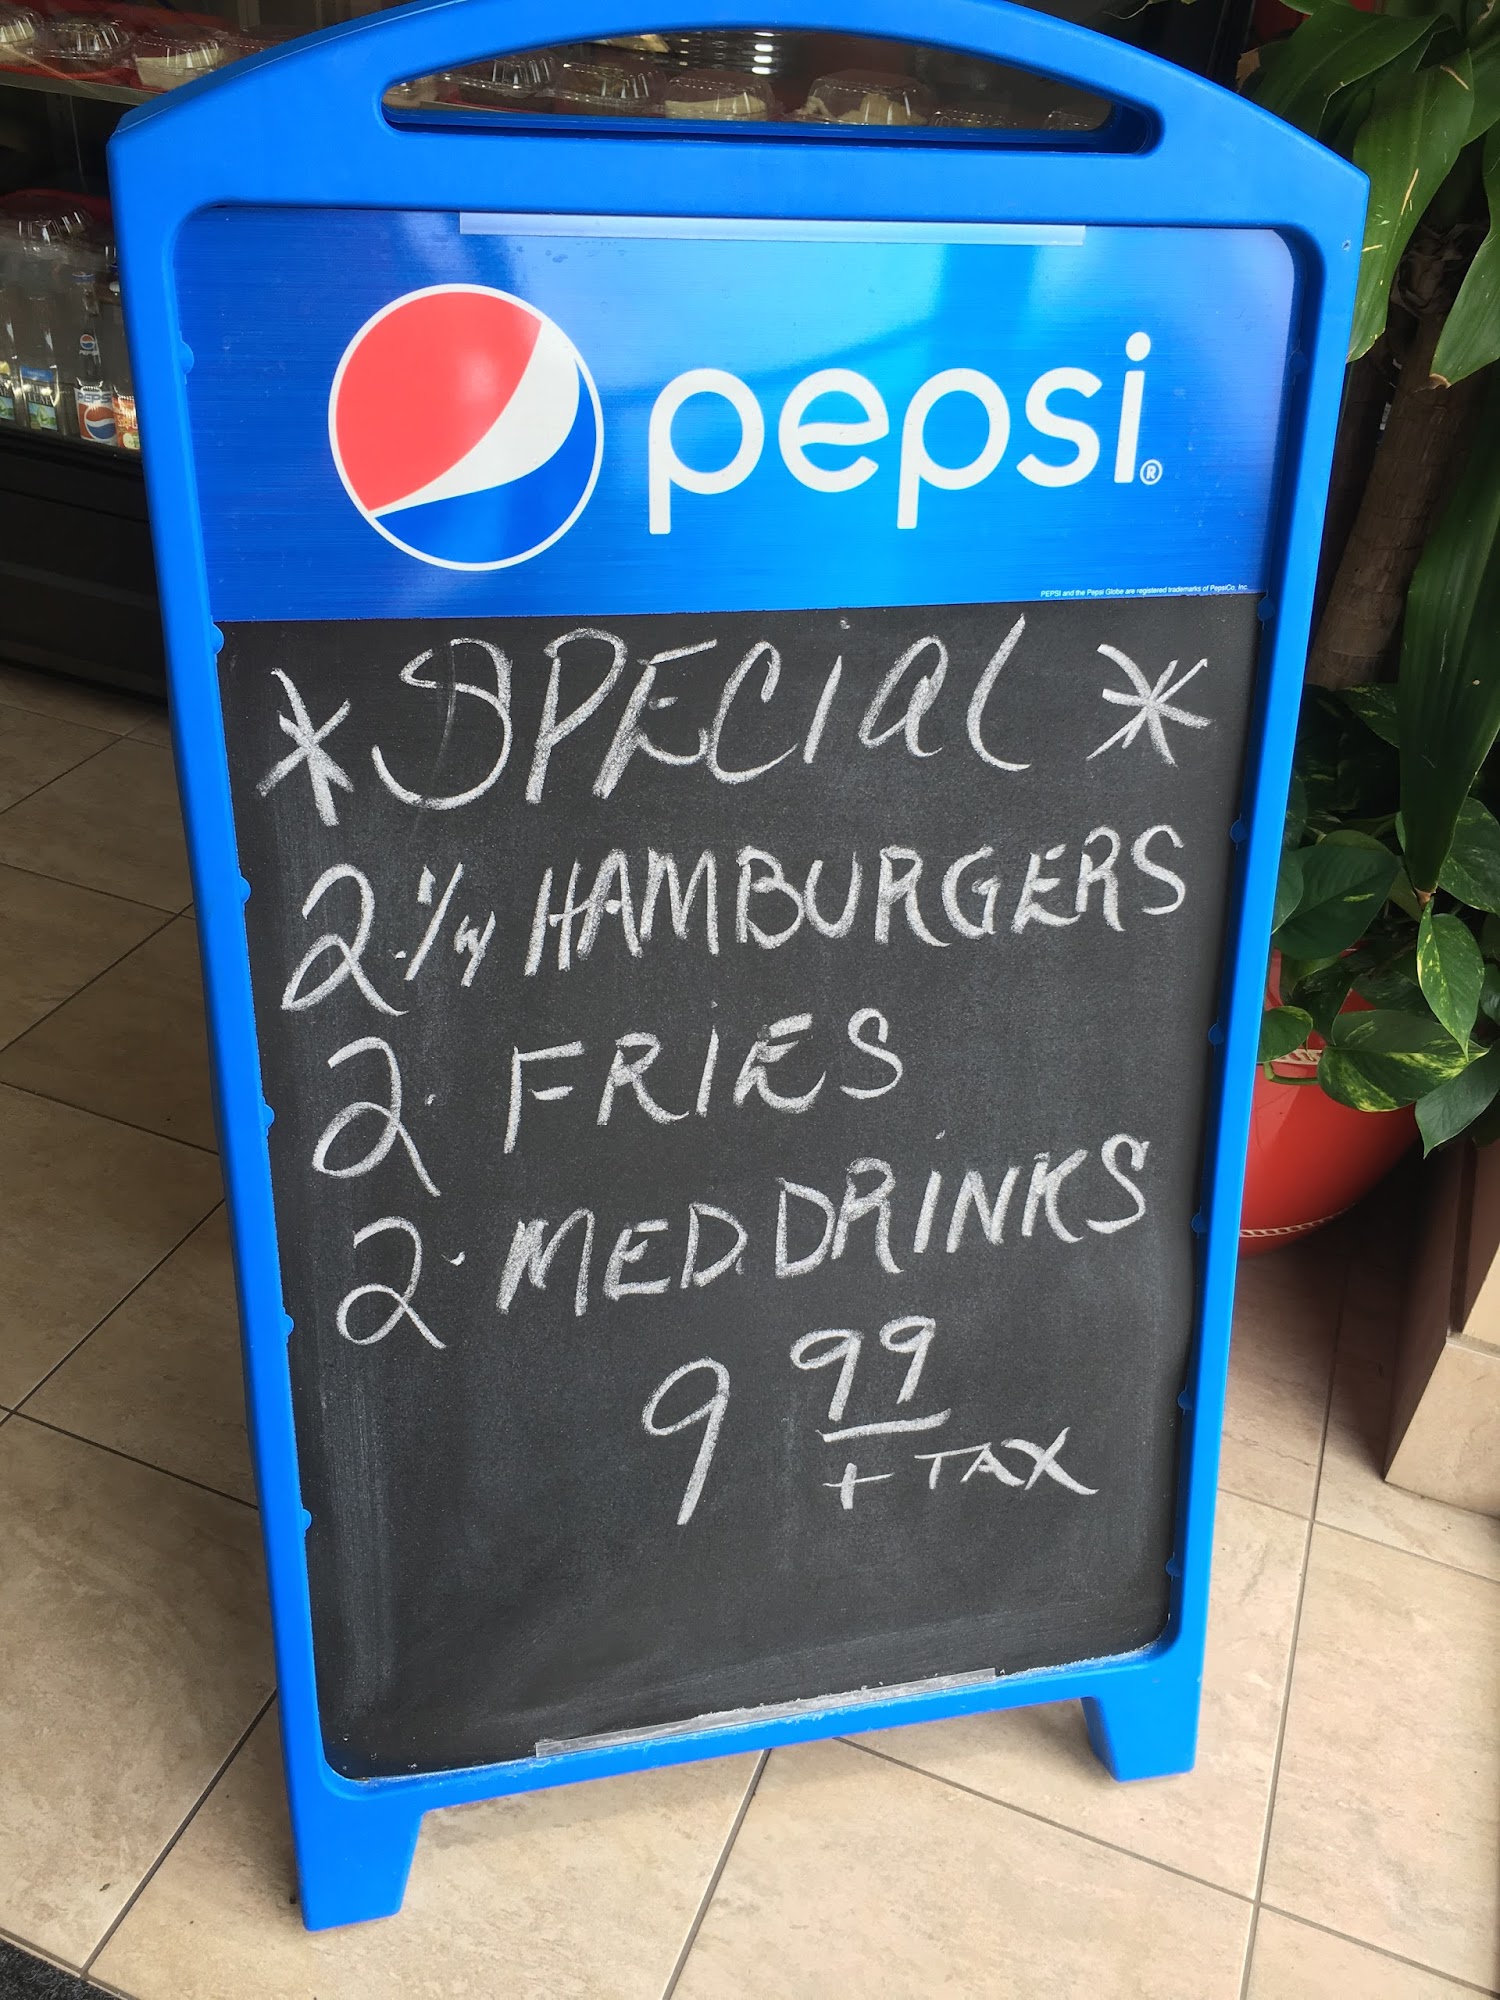 pepsi®
PEPSI and the Pepsi Globe are registered trademarks of PepsiCo, Inc.
* SPECiaL *
2 1/4 HAMBURGERS
2. FRiES
2. MED. DRiNKS
9 99
+ TAX